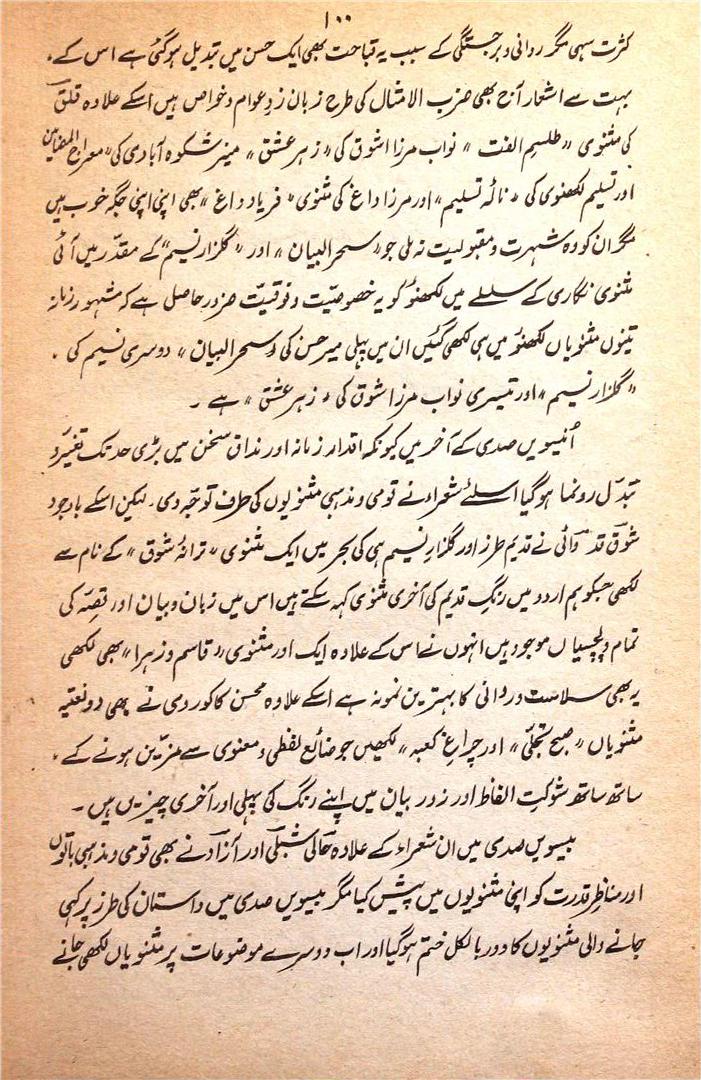 ۱۰۰
کثرت سہی مگر روانی و برجستگی کے سبب یہ قباحت بھی ایک حسن میں تبدیل ہو گئی ہے اس کے۔
بہت سے اشعار آج بھی ضرب الامثال کی طرح زبان زدِ عوام و خواص ہیں اسکے علاوہ قلق
کی مثنوی "طلسمِ الفت" نواب مرزا شوق کی "زہر عشق" میر شکوہ آبادی کی "معراج المضامین
اور تسلیم لکھنوی کی "نالۂ تسلیم" اور مرزا داغ کی مثنوی "فریاد داغ" بھی اپنی اپنی جگہ خوب ہیں
مگر ان کو وہ شہرت و مقبولیت نہ ملی جو "سحر البیان" اور "گلزار نسیم" کے مقدّر میں آئی
مثنوی نگاری کے سلسلے میں لکھنؤ کو یہ خصوصیّت و فوقیّت ضرور حاصل ہے کہ مشہور زمانہ
تینوں مثنویاں لکھنؤ میں ہی لکھی گئیں ان میں پہلی میر حسن کی "سحر البیان" دوسری نسیم کی ۔
"گلزار نسیم" اور تیسری نواب مرزا شوق کی "زہر عشق" ہے ۔
اُنیسویں صدی کے آخر میں کیونکہ اقدار زمانہ اور مذاق سخن میں بڑی حد تک تغیّر و
تبدّل رونما ہو گیا اسلئے شعراء نے قومی و مذہبی مثنویوں کی طرف توجّہ دی۔ لیکن اسکے باوجود
شوق قدوائی نے قدیم طرز اور گلزارِ نسیم ہی کی بحر میں ایک مثنوی "ترانۂ شوق" کے نام سے
لکھی جسکو ہم اردو میں رنگِ قدیم کی آخری مثنوی کہہ سکتے ہیں اس میں زبان و بیان اور قصّہ کی
تمام دلچسپیاں موجود ہیں انہوں نے اس کے علاوہ ایک اور مثنوی "قاسم و زہرا" بھی لکھی
یہ بھی سلاست و روانی کا بہترین نمونہ ہے اسکے علاوہ محسن کاکوردی نے بھی دو نعتیہ
مثنویاں "صبح تجلّی" اور چراغِ کعبہ" لکھیں جو ضائع لفظی و معنوی سے مزّین ہونے کے ۔
ساتھ ساتھ شوکتِ الفاظ اور زور بیان میں اپنے رنگ کی پہلی اور آخری چیزیں ہیں ۔
بیسویں صدی میں ان شعراء کے علاوہ حالی شبلی اور آزاد نے بھی قومی و مذہبی باتوں
اور مناظرِ قدرت کو اپنی مثنویوں میں پیش کیا مگر بیسویں صدی میں داستان کی طرز پر کہی
جانے والی مثنویوں کا دور بالکل ختم ہو گیا اور اب دوسرے موضوعات پر مثنویاں لکھی جانے